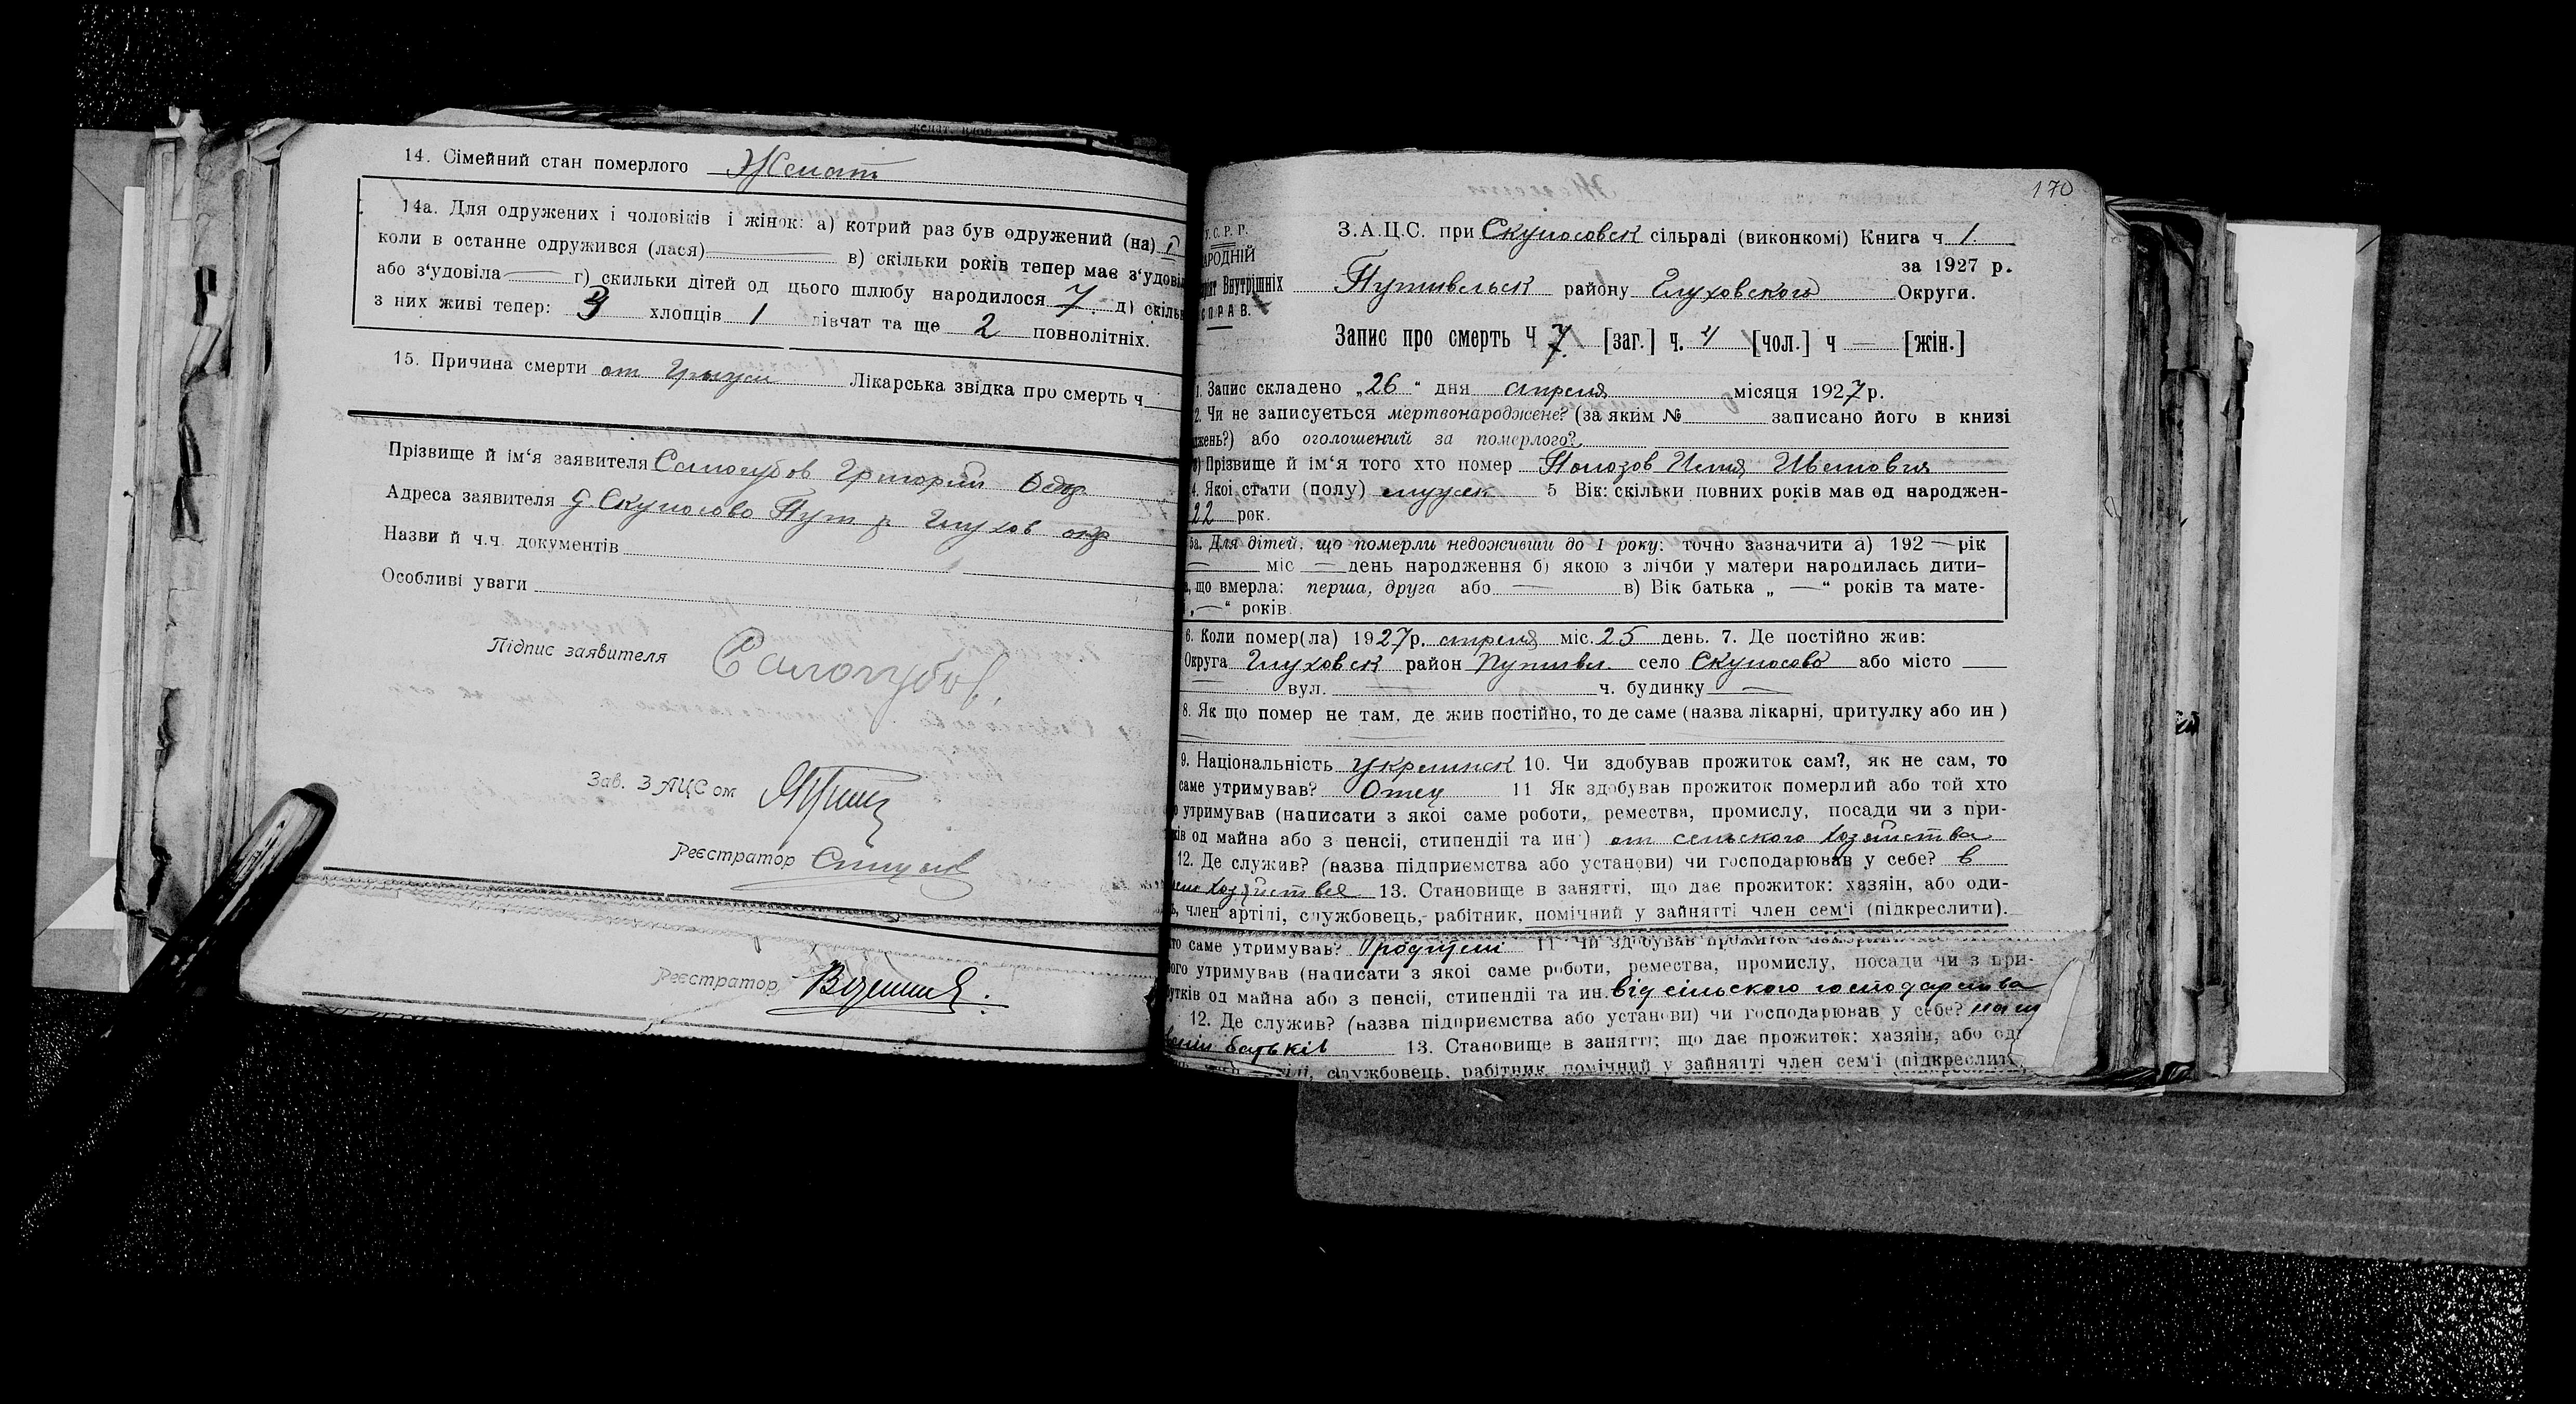 14. Сімейний стан померлого Женат
14а. Для одружених і чоловіків і жінок: а) котрий раз був одружений (на) 1
коли в останне одружився (лася) — в) скільки років тепер має з'удові
або з'удовіла — г) скильки дітей од цього шлюбу народилося 7. д) скіль
з них живі тепер: 3 хлопців 1 дівчат та ще 2 повнолітніх.
15. Причина смерти от Грыжи Лікарська звідка про смерть ч
Прізвище й ім'я заявителя Самогубов Григорий Федор
Адреса заявителя д. Скуносово Пут р Глухов окр
Назви й ч.ч. документів
Особливі уваги
Підпис заявителя Самогубов
Зав. ЗАЦСом
Реєстратор
Реєстратор
170
У.С.Р.Р.
АРОДНІЙ
Внутрішніх
СПРАВ.
З.А.Ц.С. при Скуносовск сільраді (виконкомі) Книга ч 1.
за 1927 р.
Путивльск району Глуховского Округи.
Запис про смерть Ч 7 [заг.] ч. 4 [чол.] ч — [жін.]
1. Запис складено „26“ дня апреля місяця 1927 р.
2. Чи не записується мертвонароджене? (за яким № записано його в книзі
джень?) або оголошений за померлого?
3) Прізвище й ім'я того хто помер Полозов Илья
4. Якоі стати (полу) мужск 5 Вік: скільки повних років мав од народжен-
22 рок.
5а. Для дітей, що померли недоживши до 1 року: точно зазначити а) 192 — рік
— міс — день народження б) якою з лічби у матери народилась дити-
, що вмерла: перша, друга або — в) Вік батька „ — “ років та мате-
„—“ років.
6. Коли помер(ла) 1927 р. апреля міс. 25 день. 7. Де постійно жив:
Округа Глуховск район Путивл. село Скуносово або місто —
— вул. — ч. будинку —
8. Як що помер не там, де жив постійно, то де саме (назва лікарні, притулку або ин )
9. Національність Украинск 10. Чи здобував прожиток сам?, як не сам, то
саме утримував? Отец 11 Як здобував прожиток померлий або той хто
утримував (написати з якоі саме роботи, ремества, промислу, посади чи з при-
ків од майна або з пенсіі, стипендіі та ин ) от сельского хозяйства
12. Де служив? (назва підприємства або установи) чи господарював у себе? в
хозяйстве 13. Становище в занятті, що дає прожиток: хазяін, або оди-
, член артілі, службовець, рабітник, помічний у зайнятті член сем'і (підкреслити).
то саме утримував? родители 11 Чи здобував прожиток
ого утримував (написати з якоі саме роботи, ремества, промислу, посади чи з при-
утків од майна або з пенсіі, стипендіі та ин. від сільского господарства
12. Де служив? (назва підприємства або установи) чи господарював у себе?
батьків 13. Становище в занятті: що дає прожиток: хазяін, або оди
службовець, рабітник, помічний у зайнятті член сем'і (підкреслити,